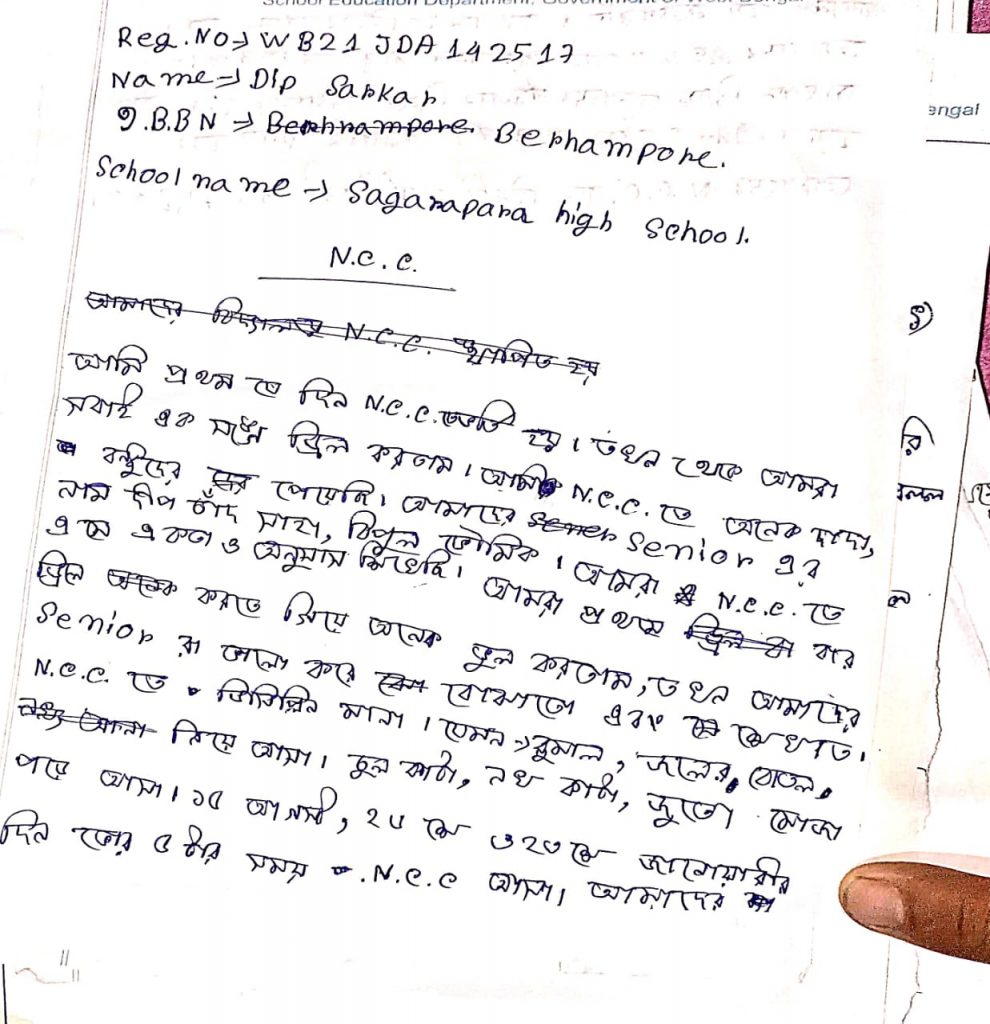 School Education Department, Government of West Bengal
Reg. No⇒ WB21 JDA 142517
Name⇒ Dip Sarkar
9.B.BN ⇒ Berhampore. Berhampore.
School name → Sagarapara high School.
N.C.C.
আমাদের বিদ্যালয়ে N.C.C. স্থাপিত হয়
আমি প্রথম যে দিন N.C.C. ভর্তি হয়। তখন থেকে আমরা
সবাই এক সঙ্গে ড্রিল করতাম। আমি N.C.C. তে অনেক দাদা,
বন্ধুদের পেয়েছি। আমাদের Senior এর
নাম দীপ চাঁদ সাহা, বিপুল ভৌমিক। আমরা N.C.C. তে
এসে একতা ও অনুসাস শিখেছি। আমরা প্রথমে বার
ড্রিল করতে গিয়ে অনেক ভুল করতাম, তখন আমাদের
Senior রা ভালো করে বোঝাতো এবং শেখাত।
N.C.C. তে ডিসিপ্লিন মানা। যেমন⇒ রুমাল, জলের, বোতল,
নিয়ে আসা। চুল কাটা, নখ কাটা, জুতো মোজা
পরে আসা। ১৫ আগস্ট, ২৫ শে ও ২৩ শে জানোয়ারীর
দিন ভোর ৫ টার সময় N.C.C আসা। আমাদের
engal
রি
ল